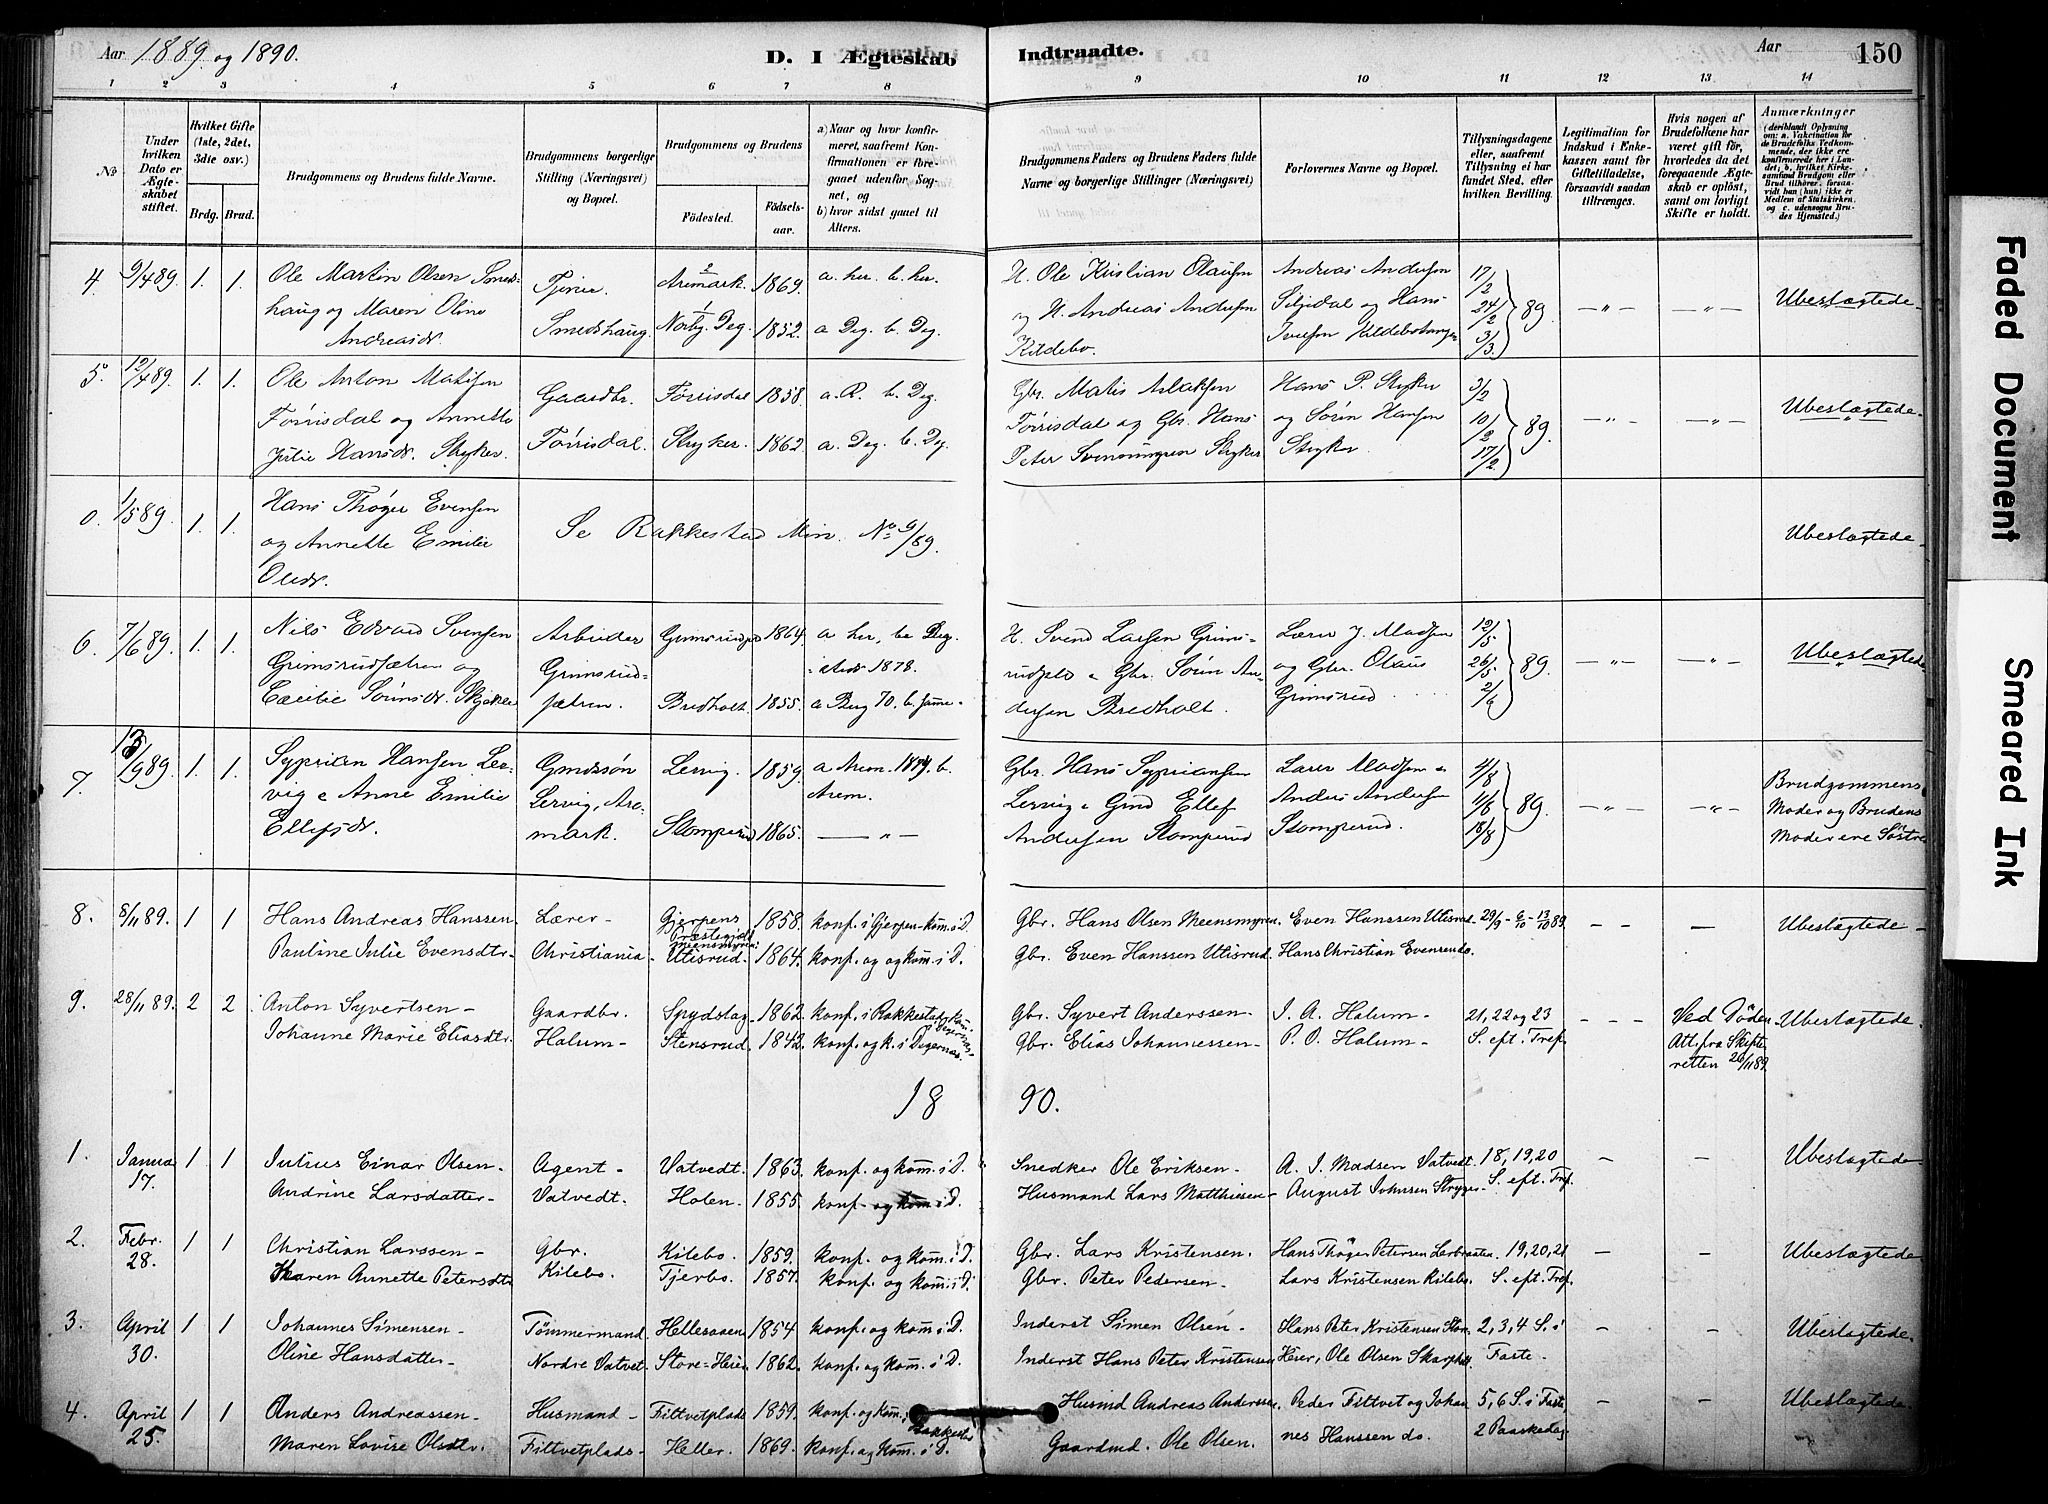 Aar 1889 og 1890.
D. I Ægteskab Indtraadte.
Aar 150
1 2 3 4 5 6 7 8 9 10 11 12 13 14
No
Under hvilken Dato er Ægteskabet stiftet.
Hvilket Gifte (1ste, 2det, 3die osv.)
Brdg. Brud.
Brudgommens og Brudens fulde Navne.
Brudgommens borgerlige Stilling (Næringsvei) og Bopæl.
Brudgommens og Brudens
Födested. Födsels-aar.
a) Naar og hvor konfirmeret, saafremt Konfirmationen er foregaaet udenfor Sognet, og
b) hvor sidst gaaet til Alters.
Brudgommens Faders og Brudens Faders fulde Navne og borgerlige Stillinger (Næringsvei)
Forlovernes Navne og Bopæl.
Tillysningsdagene eller, saafremt Tillysning ei har fundet Sted, efter hvilken Bevilling.
Legitimation for Indskud i Enkekassen samt for Giftetilladelse, forsaavidt saadan tiltrænges.
Hvis nogen af Brudefolkene har været gift før, hvorledes da det foregaaende Ægteskab er opløst, samt om lovligt Skifte er holdt.
Anmærkninger
(deriblandt Oplysning om: a. Vakcination for de Brudefolks Vedkommende, der ikke ere konfirmerede her i Landet; b. hvilket Kirkesamfund Brudgom eller Brud tilhører, forsaavidt han (hun) ikke er Medlem af Statskirken, og c. udensogns Brudes Hjemsted.)
4. 9/4 89. 1. 1. Ole Martin Olsen Smeds- Tjener Aremark. 1869. a. her. b. her. U. Ole Kristian Olausen Andreas Andersen 17/2
haug og Maren Oline Smedshaug. Norbg. Deg. 1852. a Deg. b. Deg. og U. Andreas Andersen Siljedal og Hans 24/2 89. — „ — — „ — Ubeslægtede
Andreasdr. Kildebo. Iversen Kildebotangen 3/3.
5. 12/4 89. 1. 1. Ole Anton Matisen Gaardbr. Torrisdal 1858. a. R. b. Deg. Gbr. Matis Aslaksen Hans P. Stryker 3/2
Torrisdal og Annette Torrisdal. Stryker. 1862. a. Deg. b. Deg. Torrisdal og Gbr. Hans og Sørin Hansen 10/2 89. — „ — — „ — Ubeslægtede
Julie Hansdr. Stryker. Peter Svenningsen Stryker Stryker. 17/2
0. 1/5 89. 1. 1. Hans Thøger Evensen
og Annette Emilie Se Rakkestad Min. No 9/89. Ubeslægtede
Olsdr.
6. 7/6 89. 1. 1. Nils Edvard Svensen Arbeider Grimsrudpl. 1864. a her, b. Deg. U. Svend Larsen Grims- Lærer J. Madsen 12/5
Grimsrudsætren og Grimsrud- 1878. rudpls. & Gbr. Sørin An- og Gbr. Olaus 26/5 89. — „ — — „ — Ubeslægtede
Cæcilie Sørinsdr. sætren. Bredholt. 1855. a Berg 70. b. samme. dersen Bredholt. Grimsrud 2/6
7. 13/9 89. 1. 1. Syprian Hansen Ler- Gmdssøn Lervig. 1859. a Arem. b. Gbr. Hans Sypriansen Lærer Madsen & 4/8 Brudgommens
vig & Anne Emilie Lervig, Are- Arem. Lervig & Gmd Ellef Anders Andersen 11/8 89. — „ — — „ — Moder og Brudens
Ellefsdr. mark. Stomperud 1865. — „ — Andersen Stomperud Stomperud. 18/8 Moder ere Søstre
8. 8/11 89. 1 1 Hans Andreas Hanssen Lærer- Gjerpens Præstegjeld 1858. konf. i Gjerpen - kom. i D. Gbr. Hans Olsen Meensmyren. Even Hanssen Utisrud. 29/9 - 6/10 - 13/10 89. - - — Ubeslægtede -
Pauline Julie Evensdtr. Christiania Utisrud. 1864. konf. og kom. i D. Gbr. Even Hanssen Utisrud. Hans Christian Evensen do.
9. 28/11 89. 2 2 Anton Syvertsen - Gaardbr. Spydstag 1862. konf. i Rakkestad, kom. i Degernæs. Gbr. Syvert Anderssen - I. A. Halum - 21, 22 og 23 - - - Ved Döden Ubeslægtede
Johanne Marie Eliasdtr. Halum - Stensrud. 1842. konf. og k. i Degernæs. Gbr. Elias Johannessen - P. O. Halum - S. eft. Tref. Att. fra Skifte-
retten 26/11 89.
18 90.
1. Janua 1 1 Julius Einar Olsen - Agent - Vatvedt. 1863. konf. og kom. i D. Snedker Ole Eriksen - A. J. Madsen Vatvedt 18, 19, 20 — — Ubeslægtede
17. Andrine Larsdatter - Vatvedt. Holen. 1855. konf. og kom. i D. Husmand Lars Matthiesen - August Johnsen S. eft. Tref.
2. Febr. 1 1 Christian Larssen - Gbr. Kilebo. 1859. konf. og kom. i D. Gbr. Lars Kristensen. Hans Thöger Petersen 19, 20, 21 — — Ubeslægtede
28. Karen Annette Petersdtr. Kilebo. Tjerbo. 1857. konf. og kom. i D. Gbr. Peter Pedersen - Lars Kristensen Kilebo. S. eft. Tref.
3. April 1 1 Johannes Simensen - Tömmermand Hellesaaen 1854. konf. og kom. i D. Inderst Simen Olsen - Hans Peter Kristensen Store- 2, 3, 4 S. i — — Ubeslægtede.
30. Oline Hansdatter - Nordre Vatvet. Store-Heier 1862. konf. og kom. i D. Inderst Hans Peter Kristensen Heier, Ole Olsen Faste -
4. April 1 1 Anders Andreassen - Husmand - Fittvetplads 1859. konf. og kom. i Rakkestad Husmd Andreas Anderssen. Peder Fittvet og Johan- 5, 6 S. i Faste — — Ubeslægtede.
25. Maren Lovise Olsdtr. Fittvetplads - Heller. 1869. konf. og kom. i D. Gaardmd. Ole Olsen. nes Hanssen do. 2 Paaskedag
Faded Document
Smeared Ink